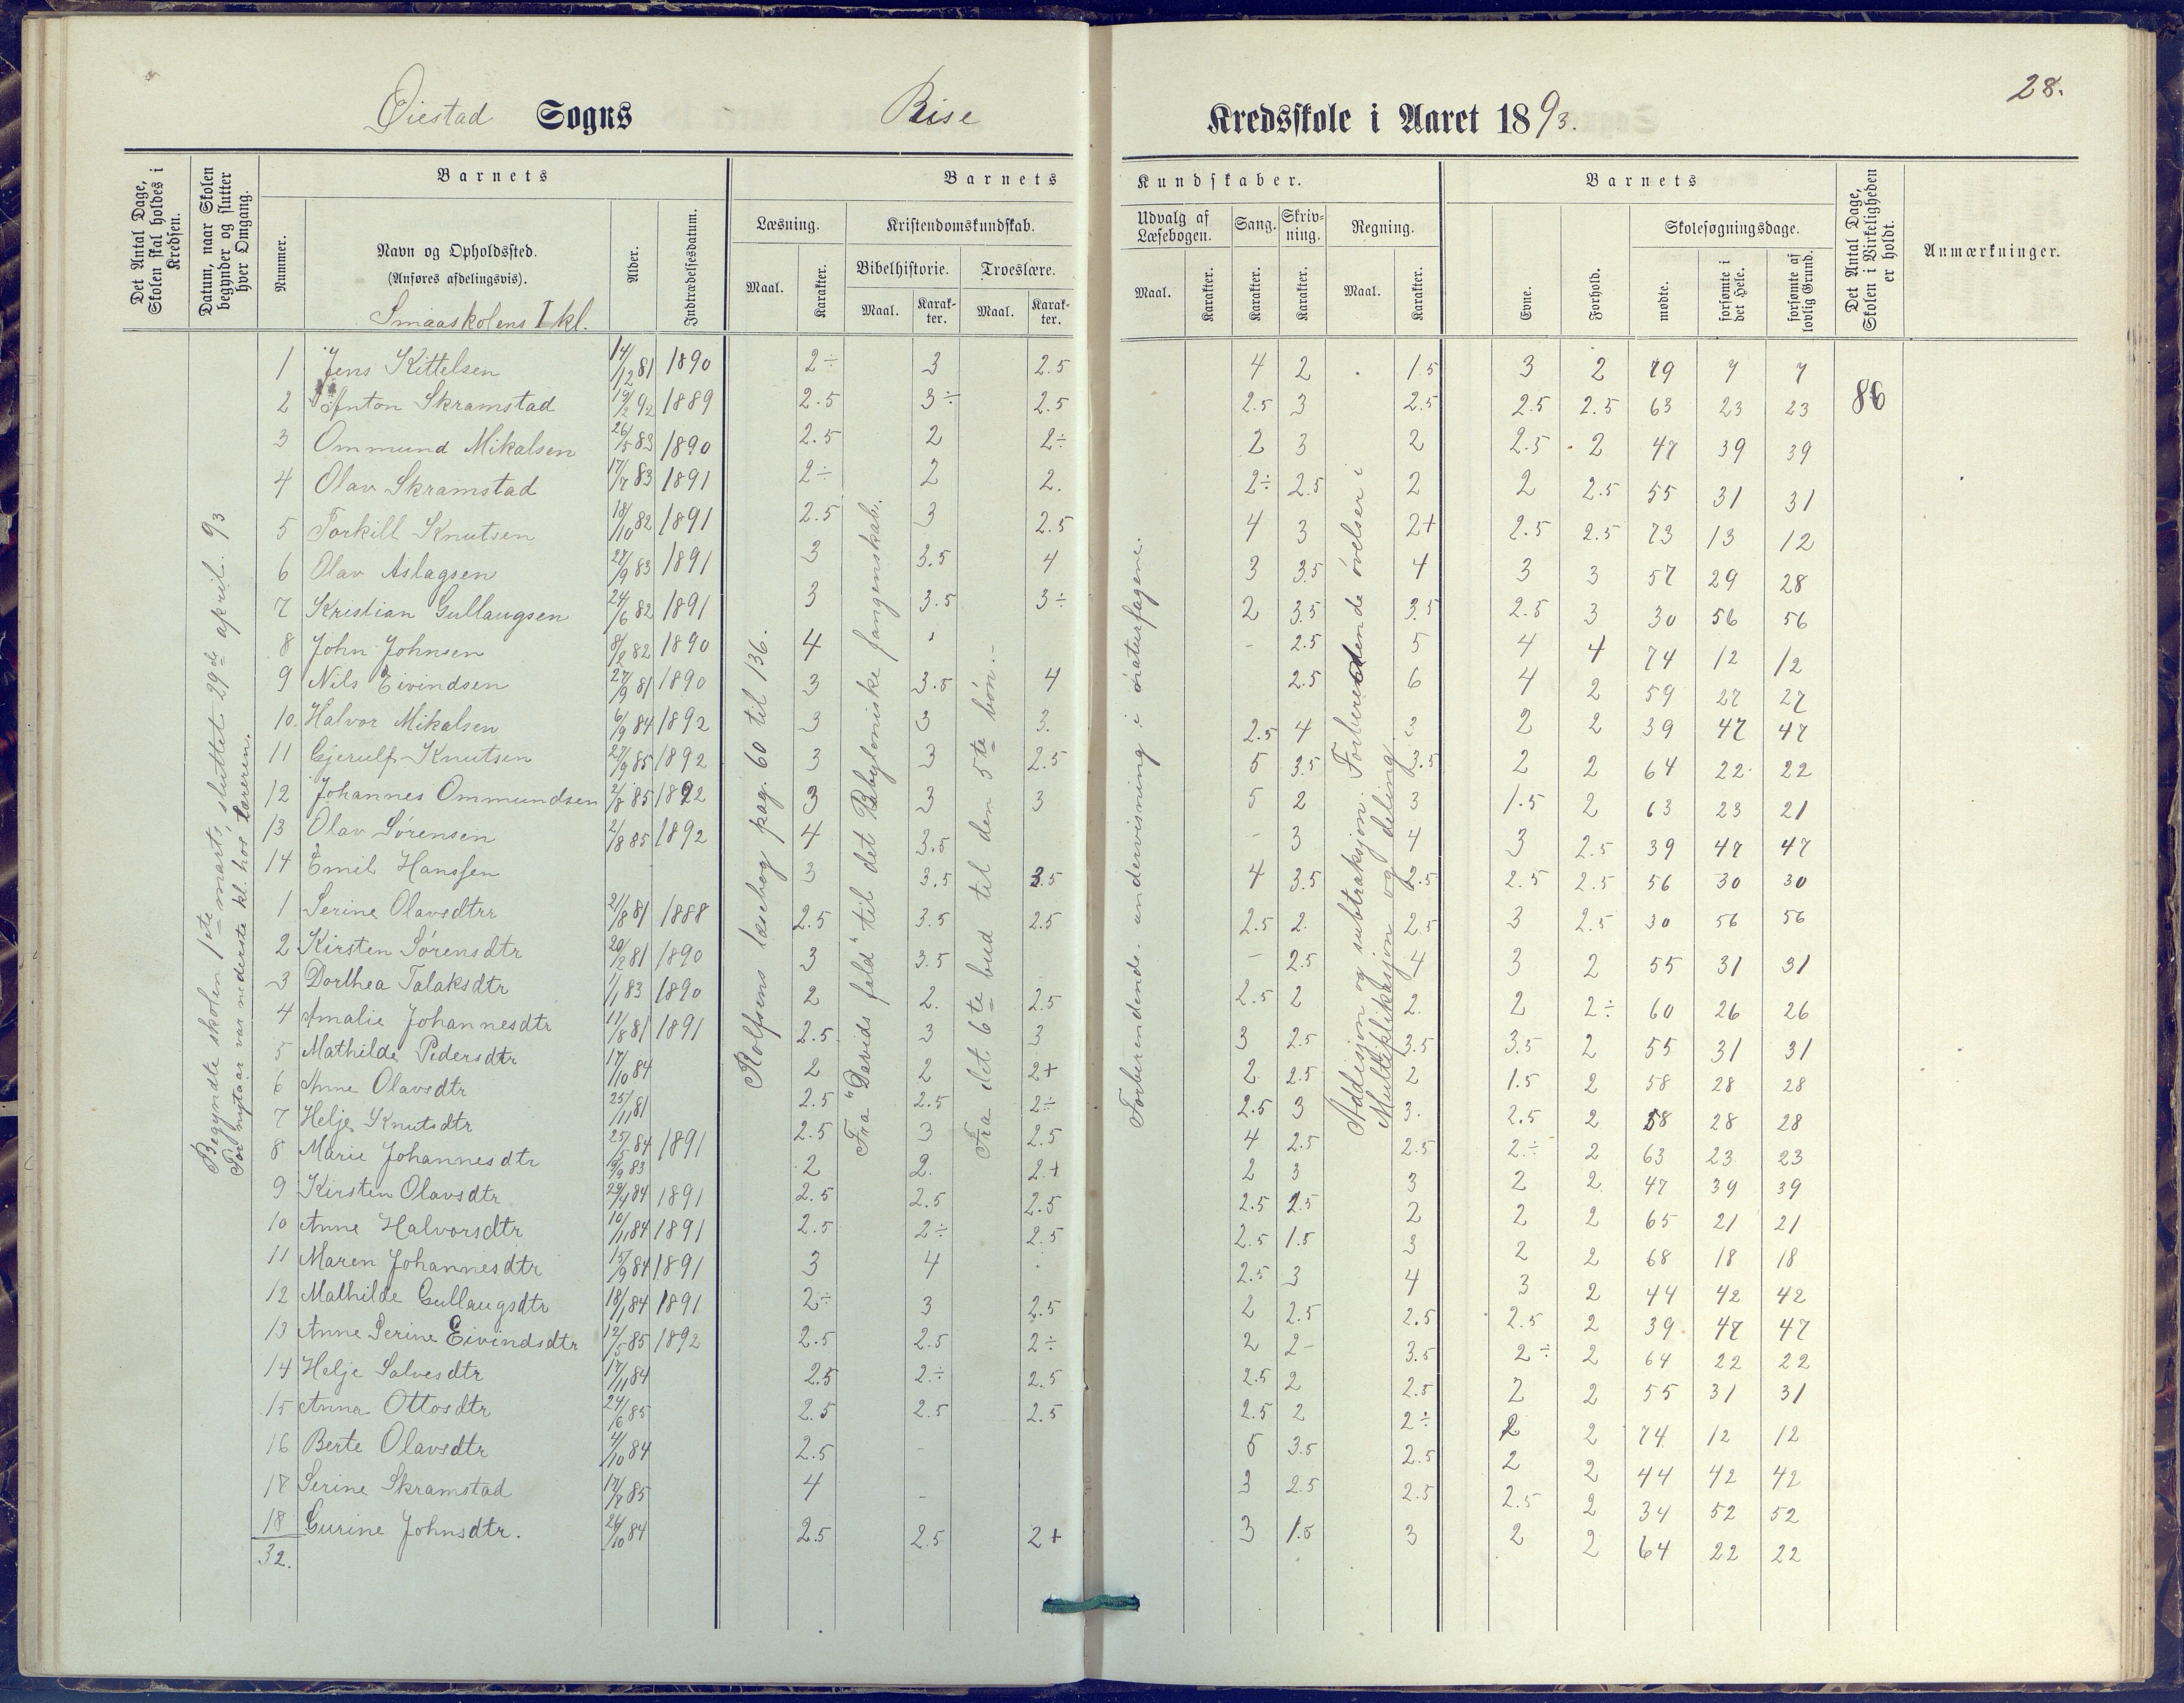 28.
Øiestad Sogns Rise Kredsskole i Aaret 1893.
Det Antal Dage, Skolen skal holdes i Kredsen.
Datum, naar Skolen begynder og slutter hver Omgang.
Barnets
Nummer.
Navn og Opholdssted.
(Anføres afdelingsvis).
Smaaskolens I kl.
Alder.
Indtrædelsesdatum.
Barnets Kundskaber.
Læsning.
Maal. Karakter.
Kristendomskundskab.
Bibelhistorie. Troeslære.
Maal. Karakter. Maal. Karakter.
Udvalg af Læsebogen.
Maal. Karakter.
Sang. Karakter.
Skrivning. Karakter.
Regning.
Maal. Karakter.
Barnets
Evne. Forhold.
Skolesøgningsdage.
mødte. forsømte i det Hele. forsømte af lovlig Grund.
Det Antal Dage, Skolen i Virkeligheden er holdt.
Anmærkninger.
Begyndte skolen 1ste marts, sluttet 29de april. 93
Før nytaar var nederste kl. hos læreren.
Rolfsens læsebog pag. 60 til 136.
Fra "Davids fald" til det Babyloniske fangenskab.
Fra det 6te bud til den 5te bøn.-
Forberendende undervisning i øraturfagene.
Addisjon og subtraksjon. Forberedende øvelser i
Multiplikasjon og deling.
1 Jens Kittelsen 14/12 81 1890 2÷ 3 2.5 4 2 1.5 3 2 79 7 7 86
2 Anton Skramstad 19/2 92 1889 2.5 3÷ 2.5 2.5 3 2.5 2.5 2.5 63 23 23
3 Ommund Mikalsen 26/5 83 1890 2.5 2 2÷ 2 3 2 2.5 2 47 39 39
4 Olav Skramstad 17/7 83 1891 2÷ 2 2. 2÷ 2.5 2 2 2.5 55 31 31
5 Torkill Knutsen 18/10 82 1891 2.5 3 2.5 4 3 2+ 2.5 2.5 73 13 12
6 Olav Aslagsen 27/9 83 1891 3 3.5 4 3 3.5 4 3 3 57 29 28
7 Kristian Gullaugsen 24/6 82 1891 3 3.5 3÷ 2 3.5 3.5 2.5 3 30 56 56
8 John Johnsen 8/2 82 1890 4 - 2.5 5 4 4 74 12 12
9 Nils Eivindsen 27/9 81 1890 3 3.5 4 2.5 6 4 2 59 27 27
10. Halvor Mikalsen 6/9 84 1892 3 3 3. 2.5 4 3 2 2 39 47 47
11 Gjerulf Knutsen 27/9 85 1892 3 3 2.5 5 3.5 3.5 2 2 64 22 22
12 Johannes Ommundsen 2/8 85 1892 3 3 3 5 2 3 1.5 2 63 23 21
13 Olav Sørensen 2/8 85 1892 4 3.5 - 3 4 3 2.5 39 47 47
14 Emil Hanssen 3 3.5 3.5 4 3.5 2.5 2.5 2.5 56 30 30
1 Serine Olavsdtrr 2/8 81 1888 2.5 3.5 2.5 2.5 2. 2.5 3 2.5 30 56 56
2 Kirsten Sørensdtr 20/2 81 1890 3 3.5 - 2.5 4 3 2 55 31 31
3 Dorthea Talaksdtr 1/1 83 1890 2 2. 2.5 2.5 2 2. 2 2÷ 60 26 26
4 Amalie Johannesdtr 11/8 81 1891 2.5 3 3 3 2.5 3.5 3.5 2 55 31 31
5 Mathilde Pedersdtr 17/10 84 2 2 2+ 2 2.5 2 1.5 2 58 28 28
6 Anne Olavsdtr 25/11 81 2.5 2.5 2÷ 2.5 3 3. 2.5 2 58 28 28
7 Helje Knutsdtr 25/5 84 1891 2.5 3 2.5 4 2.5 2.5 2÷ 2 63 23 23
8 Marie Johannesdtr 19/9 83 2 2. 2+ 2 3 3 2 2 47 39 39
9 Kirsten Olavsdtr 29/1 84 1891 2.5 2.5 2.5 2.5 2.5 2 2 2 65 21 21
10 Anne Halvorsdtr 10/11 84 1891 2.5 2÷ 2.5 2.5 1.5 3 2 2 68 18 18
11 Maren Johannesdtr 15/9 84 1891 3 4 2.5 3 4 3 2 44 42 42
12 Mathilde Gullaugsdtr 18/1 84 1891 2÷ 3 2.5 2 2.5 2.5 2.5 2 39 47 47
13 Anne Serine Eivindsdtr 12/5 85 1892 2.5 2.5 2÷ 2 2- 3.5 2÷ 2 64 22 22
14 Helje Salvesdtr 17/11 84 2.5 2÷ 2.5 2.5 2 2.5 2 2 55 31 31
15 Anna Ottosdtr 24/6 85 2.5 2.5 2.5 2.5 2 2÷ 2 2 74 12 12
16 Berte Olavsdtr 4/10 84 2.5 - 5 3.5 2.5 2 2 44 42 42
17 Serine Skramstad 17/7 85 4 - 3 2.5 2.5 2.5 2 34 52 52
18 Gurine Johnsdtr. 26/10 84 2.5 2.5 2+ 3 1.5 3 2 2 64 22 22
32.